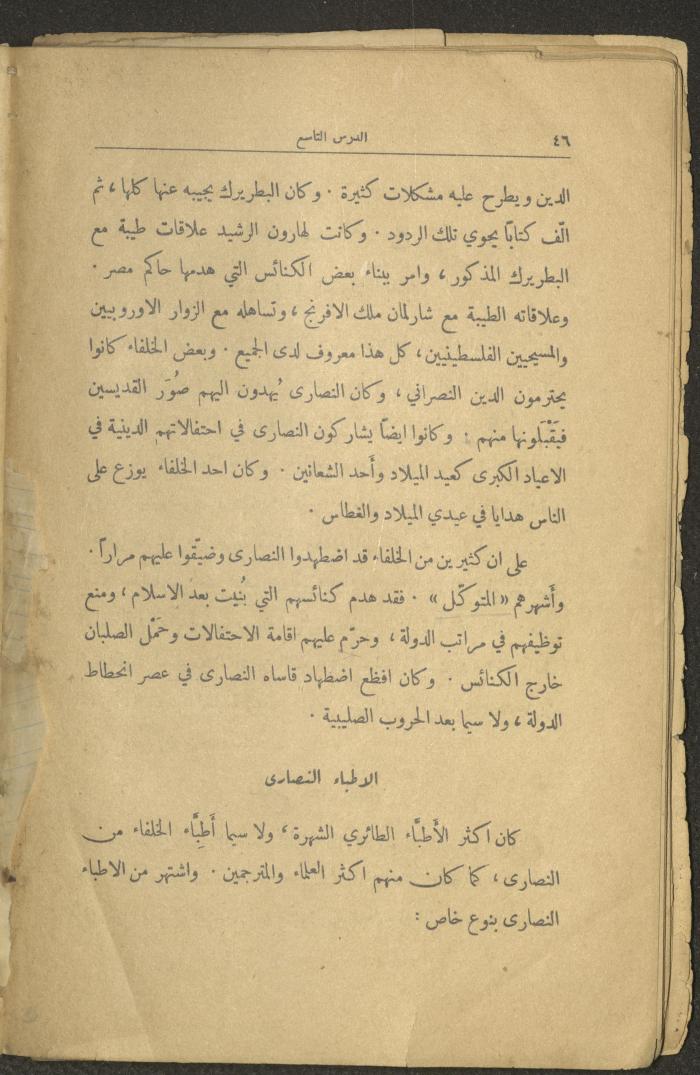 ٤٦
الدرس التاسع
الدين ويطرح عليه مشكلات كثيرة . وكان البطريرك يجيبه عنها كلها ، ثم
الّف كتابًا يحوي تلك الردود . وكانت لهارون الرشيد علاقات طيبة مع
البطريرك المذكور ، وامر ببناء بعض الكنائس التي هدمها حاكم مصر .
وعلاقاته الطيبة مع شارلمان ملك الافرنج ، وتساهله مع الزوار الاوروبيين
والمسيحيين الفلسطينيين ، كل هذا معروف لدى الجميع . وبعض الخلفاء كانوا
يحترمون الدين النصراني ، وكان النصارى يُهدون اليهم صُوَر القديسين
فيَقْبَلونها منهم . وكانوا ايضًا يشاركون النصارى في احتفالاتهم الدينية في
الاعياد الكبرى كعيد الميلاد وأَحد الشعانين . وكان احد الخلفاء يوزع على
الناس هدايا في عيدي الميلاد والغطاس .
على ان كثيرين من الخلفاء قد اضطهدوا النصارى وضيّقوا عليهم مرارًا .
وأَشهرهم «المتوكّل» . فقد هدم كنائسهم التي بُنِيت بعد الاسلام ، ومنع
توظيفهم في مراتب الدولة ، وحرّم عليهم اقامة الاحتفالات وحَمْل الصلبان
خارج الكنائس . وكان افظع اضطهاد قاساه النصارى في عصر انحطاط
الدولة ، ولا سيما بعد الحروب الصليبية .
الاطباء النصارى
كان اكثر الأَطبَّاء الطائري الشهرة ، ولا سيما أَطِبَّاء الخلفاء من
النصارى ، كما كان منهم اكثر العلماء والمترجمين . واشتهر من الاطباء
النصارى بنوع خاص :